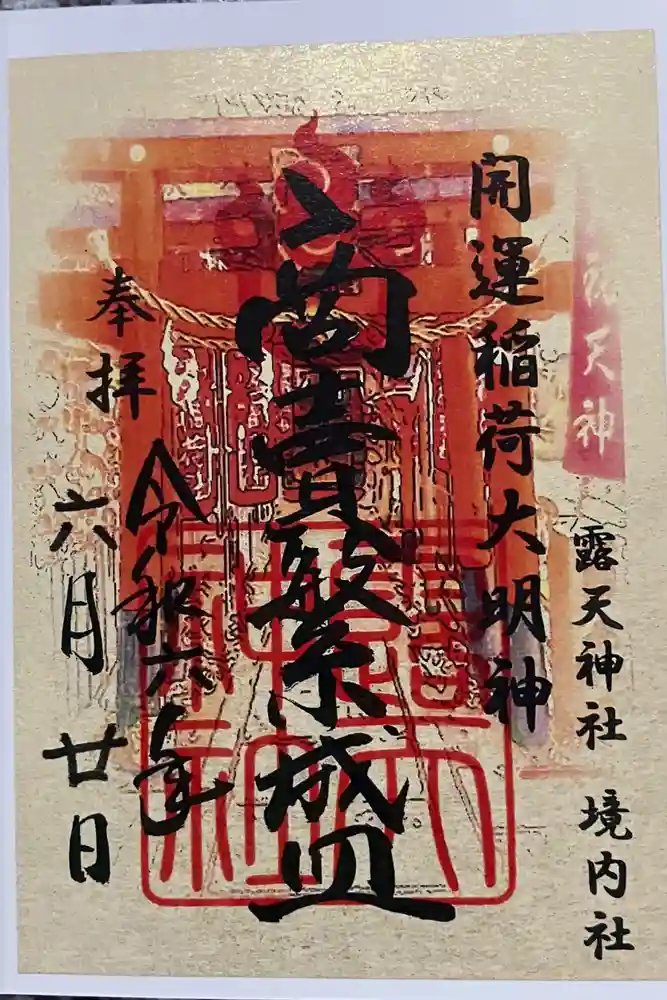 露天神
露天神社 境内社
開運稲荷大明神
商賣繁盛
奉拝
令和六年
六月 廿日